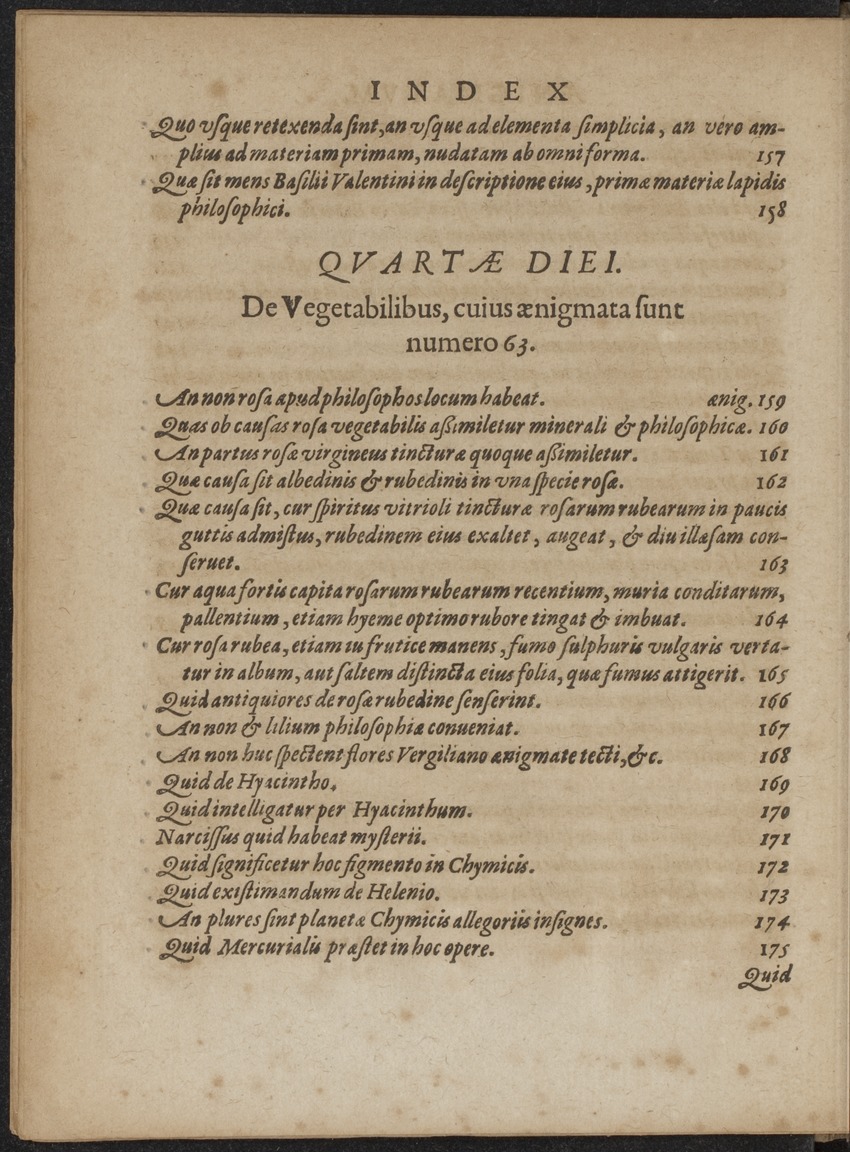 INDEX
Quo vſque retexenda ſint, an vſque ad elementa ſimplicia, an vero am-
plius ad materiam primam, nudatam ab omni forma. 157
Quæ ſit mens Baſilii Valentini in deſcriptione eius, primæ materiæ lapidis
philoſophici. 158
QVARTÆ DIEI.
De Vegetabilibus, cuius ænigmata ſunt
numero 63.
An non roſa apud philoſophos locum habeat. ænig. 159
Quas ob cauſas roſa vegetabilis aßimiletur minerali & philoſophicæ. 160
An partus roſæ virgineus tincturæ quoque aßimiletur. 161
Quæ cauſa ſit albedinis & rubedinis in vna ſpecie roſæ. 162
Quæ cauſa ſit, cur ſpiritus vitrioli tincturæ roſarum rubearum in paucis
guttis admiſtus, rubedinem eius exaltet, augeat, & diu illæſam con-
ſeruet. 163
Cur aqua fortis capita roſarum rubearum recentium, muria conditarum,
pallentium, etiam hyeme optimo rubore tingat & imbuat. 164
Cur roſa rubea, etiam in frutice manens, fumo ſulphuris vulgaris verta-
tur in album, aut ſaltem diſtincta eius folia, quæ fumus attigerit. 165
Quid antiquiores de roſæ rubedine ſenſerint. 166
An non & lilium philoſophiæ conueniat. 167
An non huc ſpectent flores Vergiliano ænigmate tecti, &c. 168
Quid de Hyacintho. 169
Quid intelligatur per Hyacinthum. 170
Narciſſus quid habeat myſterii. 171
Quid ſignificetur hoc figmento in Chymicis. 172
Quid exiſtimandum de Helenio. 173
An plures ſint planetæ Chymicis allegoriis inſignes. 174
Quid Mercurialis præſtet in hoc opere. 175
Quid